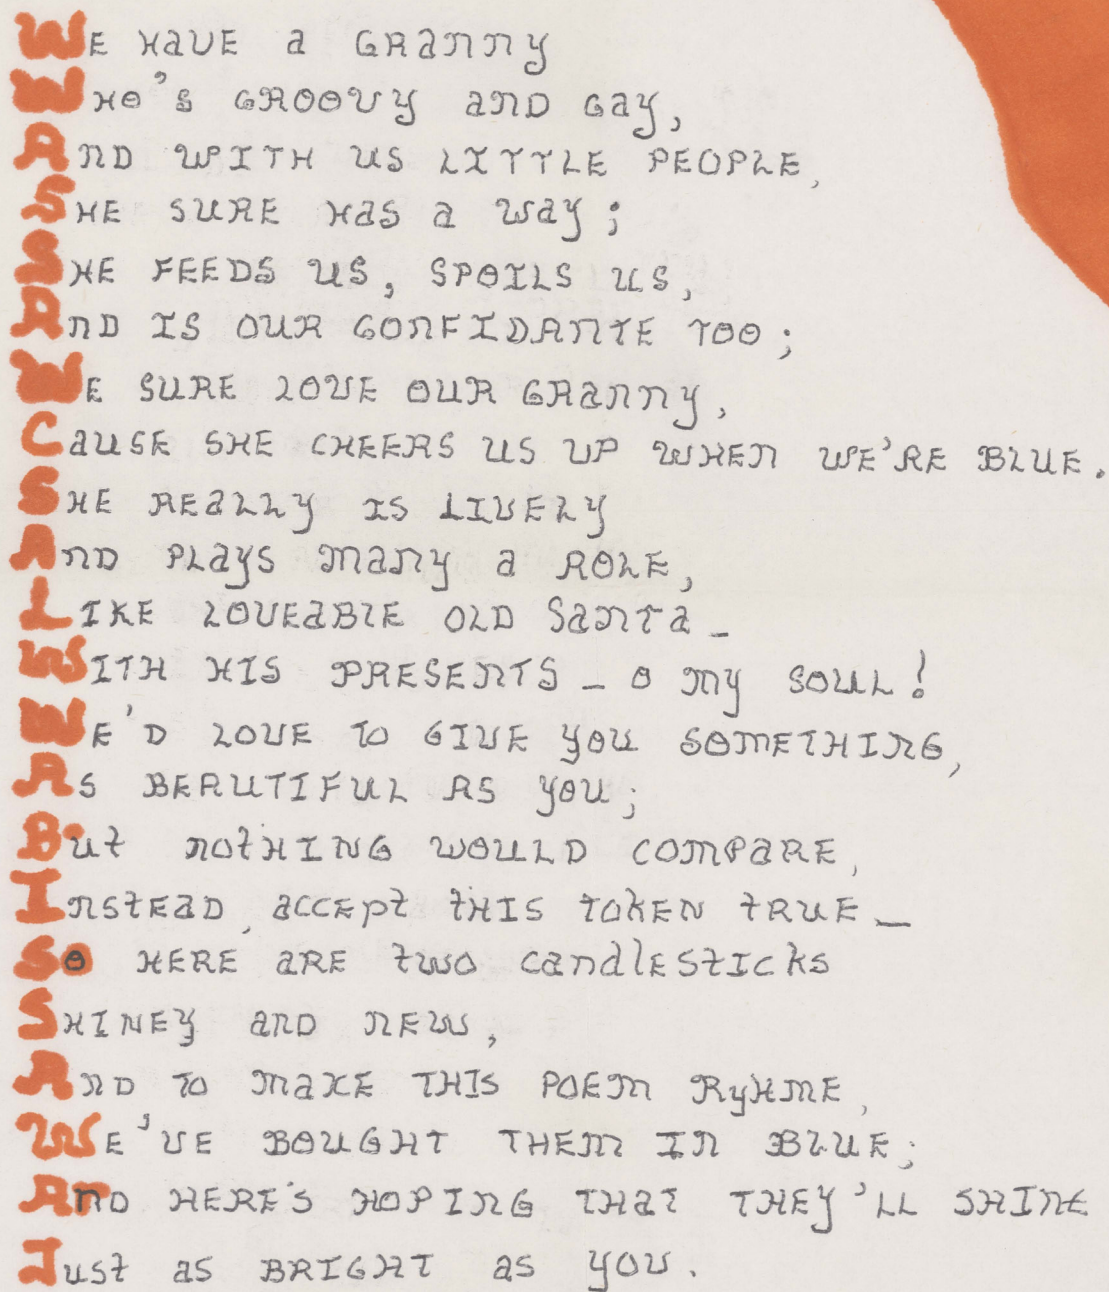 We have a Granny
Who's groovy and gay,
And with us little people,
She sure has a way;
She feeds us, spoils us,
And is our confidante too;
We sure love our Granny,
Cause she cheers us up when we're blue.
She really is lively
And plays many a role,
Like loveable old Santa –
With his presents – o my soul!
We'd love to give you something,
As beautiful as you;
But nothing would compare,
Instead, accept this token true –
So here are two candlesticks
Shiney and new,
And to make this poem ryhme,
We've bought them in blue;
And here's hoping that they'll shine
Just as bright as you.